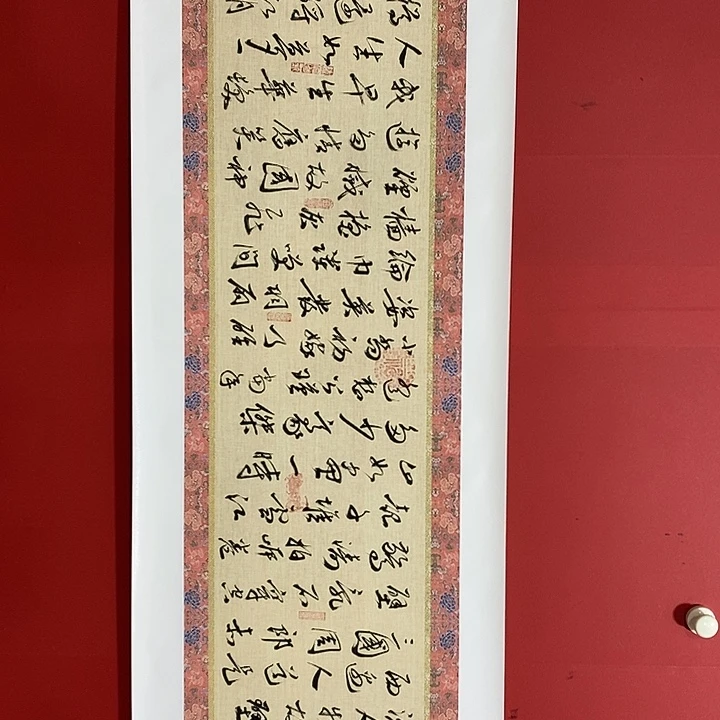 流人物故壘
西邊人道是
三國周郎赤
壁亂石穿空
驚濤拍岸捲
起千堆雪江
山如畫一時
多少豪傑
遙想公瑾當年
小喬初嫁了雄
姿英發羽扇
綸巾談笑間
檣櫓灰飛
煙滅故國神
遊多情應笑
我早生華髮
人生如夢一
樽還酹江月